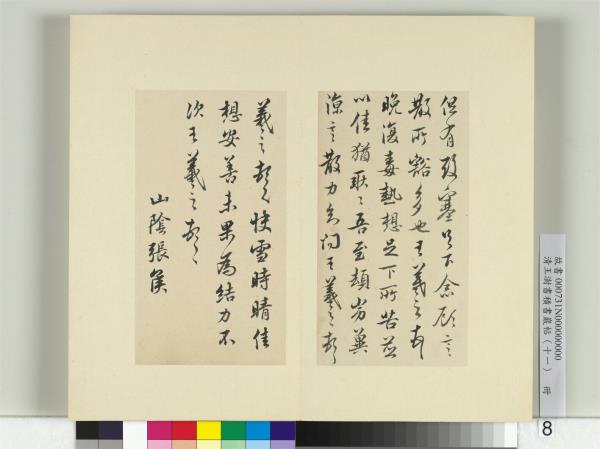 散所豁多也王羲之頓首
晚復毒熱想足下所苦並
以佳猶耿〻吾至頓劣冀
涼言散力知問王羲之頓首
羲之頓首快雪時晴佳
想安善未果為結力不
次王羲之頓首
山陰張侯
故書 000731N000000000
清王澍積書巖帖(十一) 冊
8